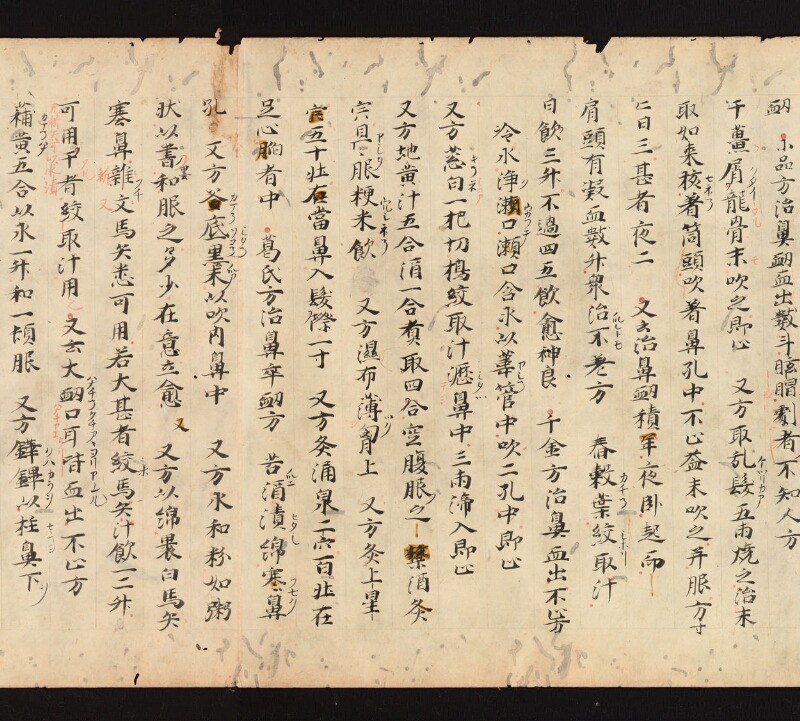 衄 小品方治鼻衄血出數斗眩冒劇者不知人方
干薑屑龍骨末吹之即止 又方取乱髮五兩燒之治末
取如棗核著筒頭吹著鼻孔中不止益末吹之并服方寸
匕日三甚者夜二 又云治鼻衄積年夜卧起而
肩頭有凝血數升衆治不差方 舂穀葉絞取汁
日飲三升不過四五飲愈神良 千金方治鼻血出不止方
冷水浄瀬口瀬口含水以葦管中吹二孔中即止
又方葱白一把切搗絞取汁瀝鼻中三兩渧入即止
又方地黄汁五合酒一合煮取四合空腹服之 禁酒灸
宍且服粳米飲 又方濕布薄胷上 又方灸上星
穴五十壮右當鼻入髮際一寸 又方灸涌泉二穴百壮在
足心陷者中 葛氏方治鼻卒衄方 苦酒漬綿塞鼻
孔 又方釜底墨末以吹内鼻中 又方水和粉如粥
状以書和服之多少在意立愈 又方以綿裹白馬矢
塞鼻雜文馬矢悉可用若大甚者絞馬矢汁飲一二升
可用干者絞取汁用 又云大衄口耳皆血出不止方
蒲黄五合以水一升和一頓服 又方鏵鍱以柱鼻下